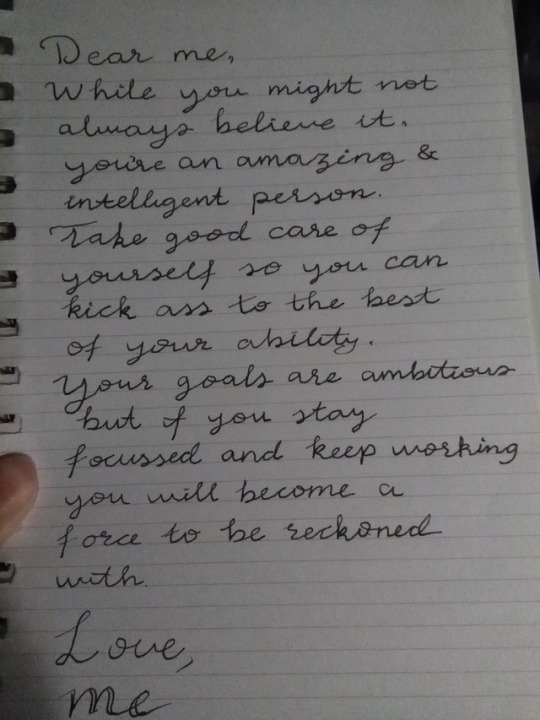 Dear me,
While you might not
always believe it.
you're an amazing &
intelligent person.
Take good care of
yourself so you can
kick ass to the best
of your ability.
Your goals are ambitious
but if you stay
focussed and keep working
you will become a
force to be reckoned
with.
Love,
me